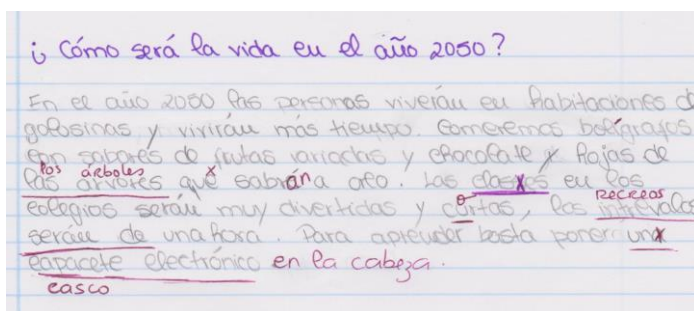 ¿Cómo será la vida en el año 2050?
En el año 2050 las personas viverán en habitaciones d
golosinas y vivirán más tiempo. Comeremos bolígrafos
con sabores de frutas variadas y chocolate y hojas de
los árboles
las arvores que sabrána oro. Las clases en los
recreos
colegios serán muy divertidas y cortas, los intervalos
serán de una hora. Para aprender basta poner una
capacete electrónico en la cabeza.
casco